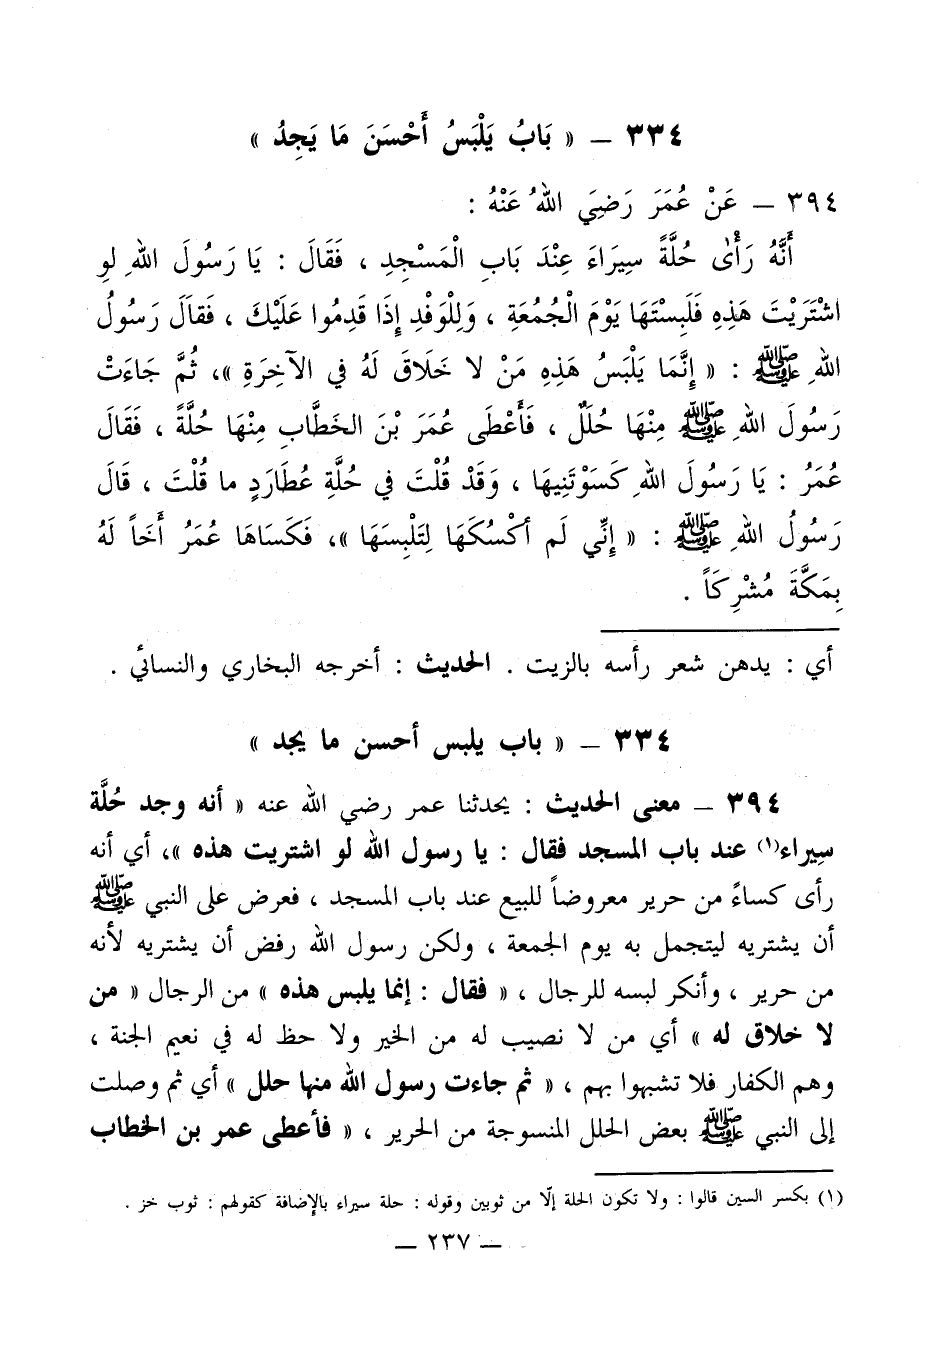 ٣٣٤ – « بَابُ يَلْبَسُ أَحْسَنَ مَا يَجِدُ »
٣٩٤ – عَنْ عُمَرَ رَضِيَ اللهُ عَنْهُ :
أَنَّهُ رَأَىٰ حُلَّةً سِيَرَاءَ عِنْدَ بَابِ الْمَسْجِدِ ، فَقَالَ : يَا رَسُولَ اللهِ لَوِ
اشْتَرَيْتَ هَذِهِ فَلَبِسْتَهَا يَوْمَ الْجُمُعَةِ ، وَلِلْوَفْدِ إِذَا قَدِمُوا عَلَيْكَ ، فَقَالَ رَسُولُ
اللهِ ﷺ : « إِنَّمَا يَلْبَسُ هَذِهِ مَنْ لا خَلَاقَ لَهُ في الآخِرَةِ »، ثُمَّ جَاءَتْ
رَسُولَ اللهِ ﷺ مِنْهَا حُلَلٌ ، فَأَعْطَى عُمَرَ بْنَ الخَطَّابِ مِنْهَا حُلَّةً ، فَقَالَ
عُمَرُ : يَا رَسُولَ اللهِ كَسَوْتَنِيهَا ، وَقَدْ قُلْتَ في حُلَّةِ عُطَارَدٍ ما قُلْتَ ، قَالَ
رَسُولُ اللهِ ﷺ : « إِنِّي لَم أكْسُكَهَا لِتَلْبِسَهَا »، فَكَسَاهَا عُمَرُ أَخَاً لَهُ
بِمَكَّةَ مُشْرِكَاً .
أي : يدهن شعر رأسه بالزيت . الحديث : أخرجه البخاري والنسائي .
٣٣٤ – « باب يلبس أحسن ما يجد »
٣٩٤ – معنى الحديث : يحدثنا عمر رضي الله عنه « أنه وجد حُلَّة
سِيراء(١) عند باب المسجد فقال : يا رسول الله لو اشتريت هذه »، أي أنه
رأى كساءً من حرير معروضاً للبيع عند باب المسجد ، فعرض على النبي ﷺ
أن يشتريه ليتجمل به يوم الجمعة ، ولكن رسول الله رفض أن يشتريه لأنه
من حرير ، وأنكر لبسه للرجال ، « فقال : إنما يلبس هذه » من الرجال « من
لا خلاق له » أي من لا نصيب له من الخير ولا حظ له في نعيم الجنة ،
وهم الكفار فلا تشبهوا بهم ، « ثم جاءت رسول الله منها حلل » أي ثم وصلت
إلى النبي ﷺ بعض الحلل المنسوجة من الحرير ، « فأعطى عمر بن الخطاب
(١) بكسر السين قالوا : ولا تكون الحلة إلّا من ثوبين وقوله : حلة سيراء بالإضافة كقولهم : ثوب خز .
– ٢٣٧ –